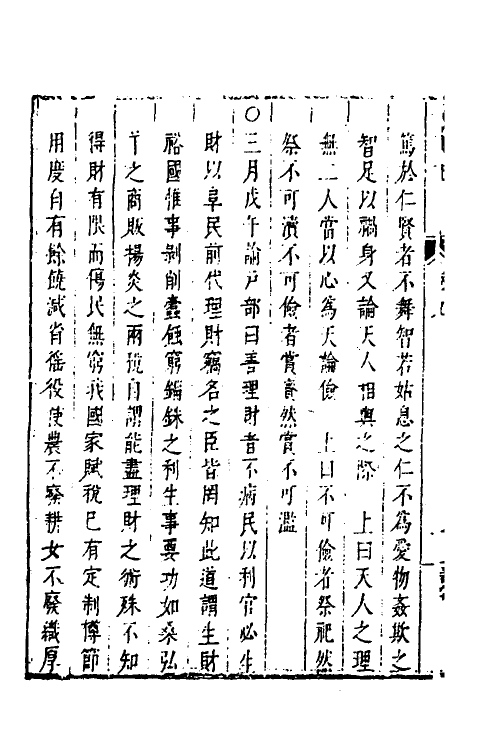 篤於仁賢者不舞智若姑息之仁不為愛物姦欺之
智足以禍身又論天人相與之際 上曰天人之理
無二人當以心為天論儉 上曰不可儉者祭祀然
祭不可瀆不可儉者賞賚然賞不可濫
○三月戊午諭戶部曰善理財者不病民以利官必生
財以阜民前代理財竊名之臣皆罔知此道謂生財
裕國惟事剝削蠹蝕窮錙銖之利生事要功如桑弘
羊之商販揚炎之兩稅自謂能盡理財之術殊不知
得財有限而傷民無窮我國家賦稅已有定制撙節
用度自有餘饒減省徭役使農不廢耕女不廢織厚